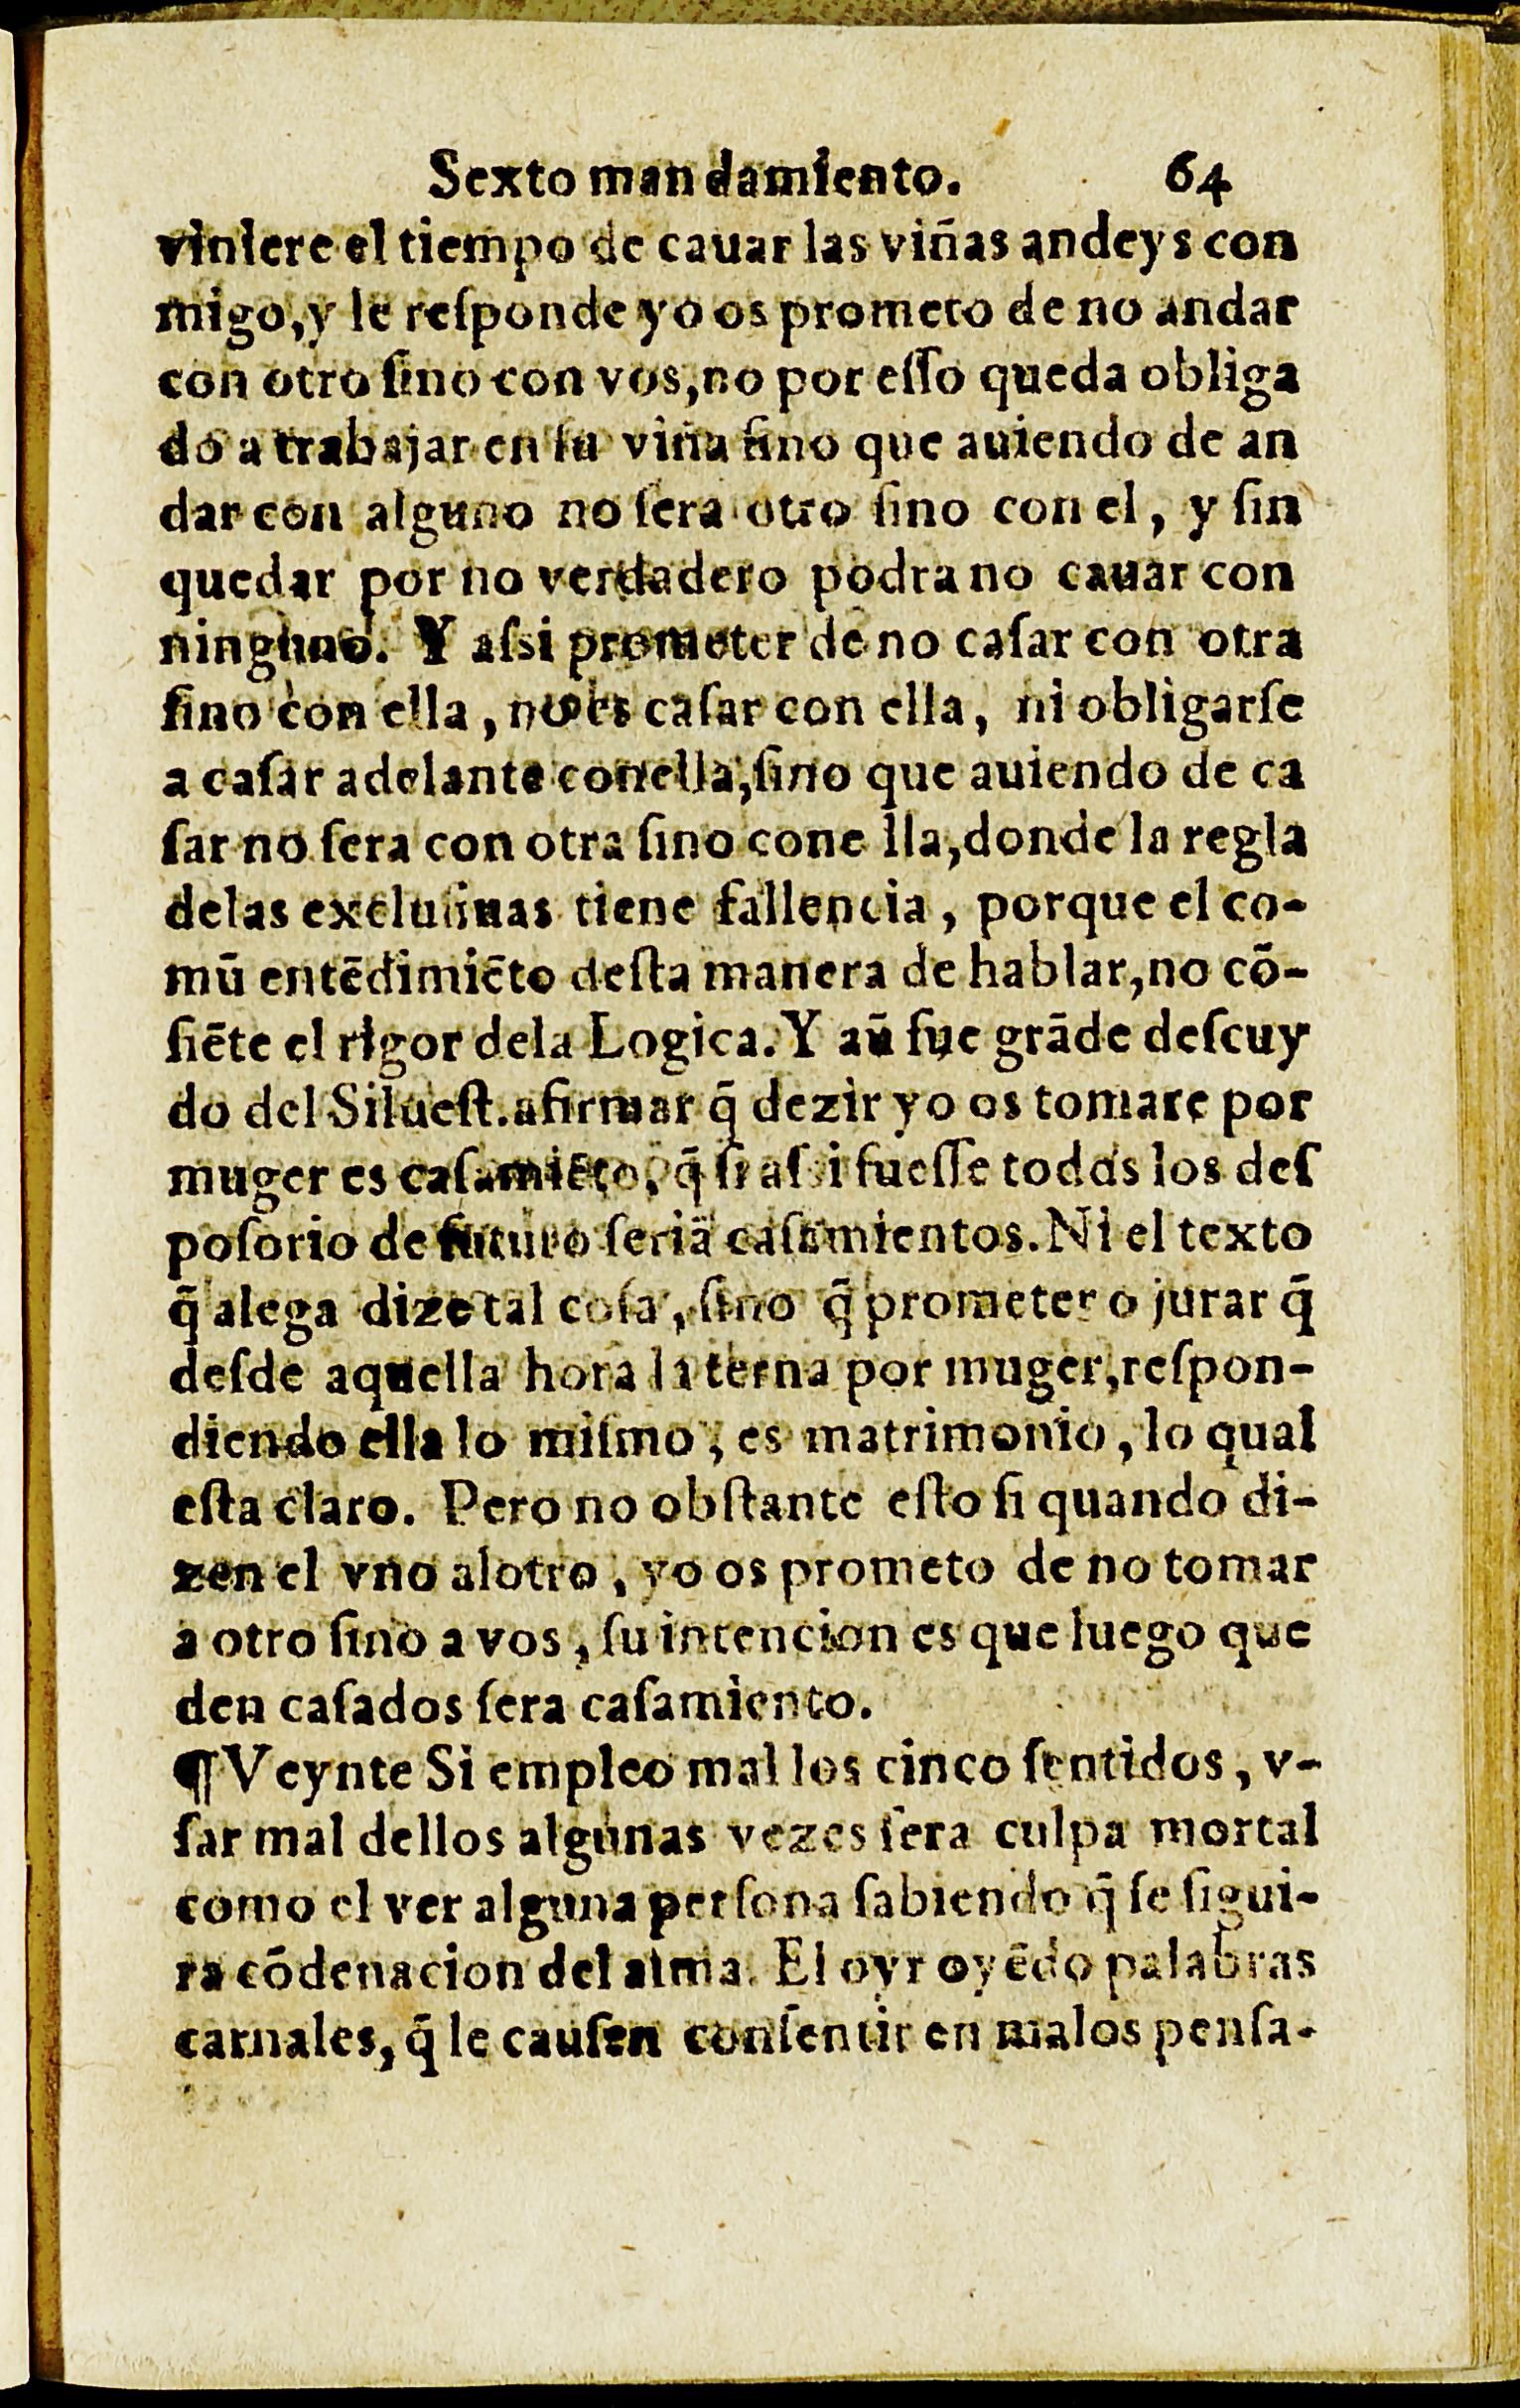 Sexto mandamiento. 64
viniere el tiempo de cauar las viñas andeys con
migo, y le reſponde yo os prometo de no andar
con otro ſino con vos, no por eſſo queda obliga
do a trabajar en ſu viña ſino que auiendo de an
dar con alguno no ſera otro ſino con el, y ſin
quedar por no verdadero podra no cauar con
ninguno. Y aſsi prometer de no caſar con otra
ſino con ella, no es caſar con ella, ni obligarſe
a caſar adelante con ella, ſino que auiendo de ca
ſar no ſera con otra ſino cone lla, donde la regla
delas excluſiuas tiene fallencia, porque el co-
mũ entẽdimiẽto deſta manera de hablar, no cõ-
ſiẽte el rigor dela Logica. Y aũ fue grãde deſcuy
do del Silueſt. afirmar q̃ dezir yo os tomare por
muger es caſamiẽto, q̃ ſi aſsi fueſſe todos los deſ
poſorio de futuro ſeriã caſamientos. Ni el texto
q̃ alega dize tal coſa, ſino q̃ prometer o jurar q̃
deſde aquella hora la terna por muger, reſpon-
diendo ella lo miſmo, es matrimonio, lo qual
eſta claro. Pero no obſtante eſto ſi quando di-
zen el vno alotro, yo os prometo de no tomar
a otro ſino a vos, ſu intencion es que luego que
den caſados ſera caſamiento.
¶ Veynte Si empleo mal los cinco ſentidos, v-
ſar mal dellos algunas vezes ſera culpa mortal
como el ver alguna perſona ſabiendo q̃ ſe ſigui-
ra cõdenacion del alma. El oyr oyẽdo palabras
carnales, q̃ le cauſen conſentir en malos penſa-